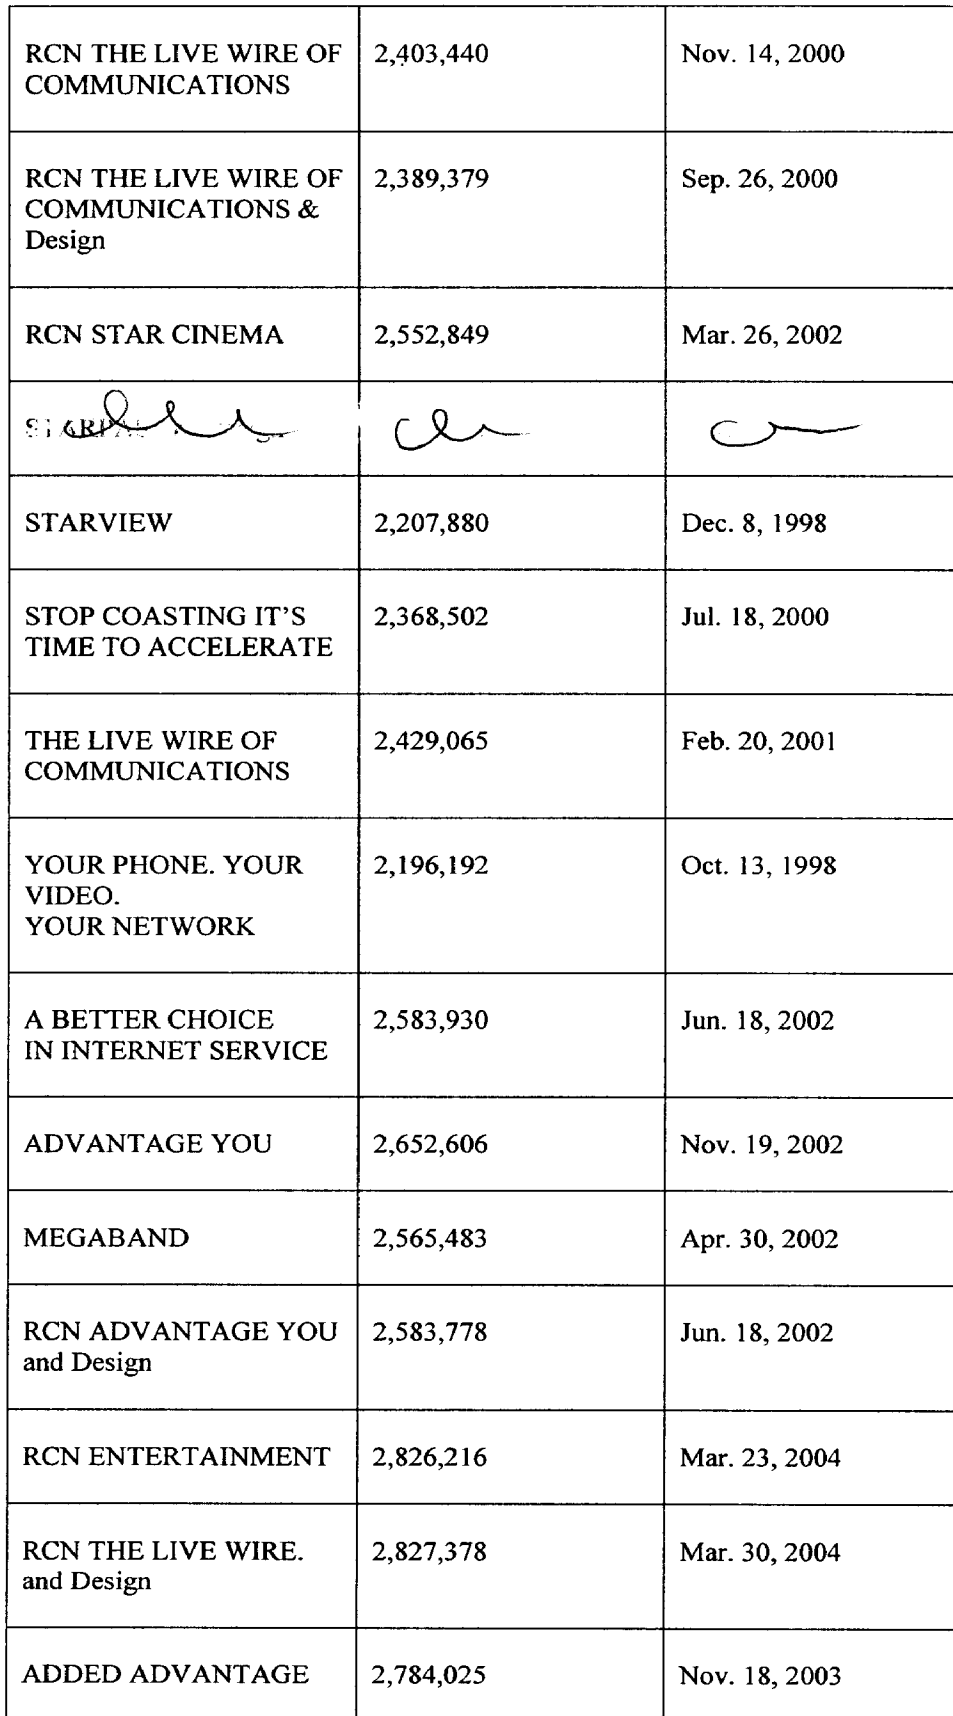 RCN THE LIVE WIRE OF COMMUNICATIONS 2,403,440 Nov. 14, 2000
RCN THE LIVE WIRE OF COMMUNICATIONS & Design 2,389,379 Sep. 26, 2000
RCN STAR CINEMA 2,552,849 Mar. 26, 2002
STARVIEW 2,207,880 Dec. 8, 1998
STOP COASTING IT'S TIME TO ACCELERATE 2,368,502 Jul. 18, 2000
THE LIVE WIRE OF COMMUNICATIONS 2,429,065 Feb. 20, 2001
YOUR PHONE. YOUR VIDEO. YOUR NETWORK 2,196,192 Oct. 13, 1998
A BETTER CHOICE IN INTERNET SERVICE 2,583,930 Jun. 18, 2002
ADVANTAGE YOU 2,652,606 Nov. 19, 2002
MEGABAND 2,565,483 Apr. 30, 2002
RCN ADVANTAGE YOU and Design 2,583,778 Jun. 18, 2002
RCN ENTERTAINMENT 2,826,216 Mar. 23, 2004
RCN THE LIVE WIRE. and Design 2,827,378 Mar. 30, 2004
ADDED ADVANTAGE 2,784,025 Nov. 18, 2003